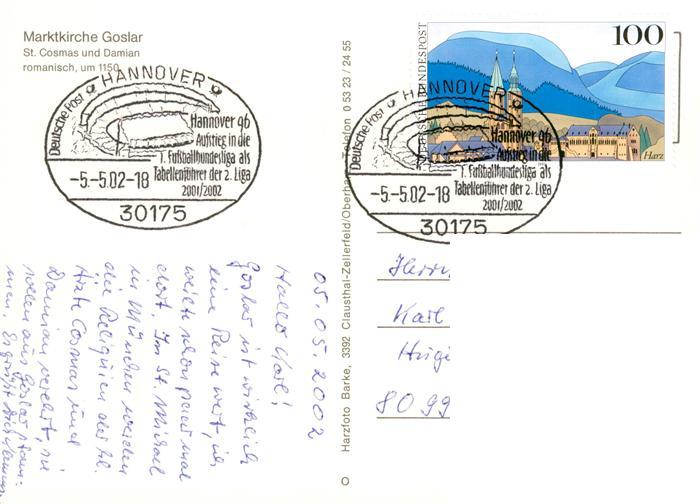 Marktkirche Goslar
St. Cosmas und Damian
romanisch, um 1150
HANNOVER
Deutsche Post
Hannover 96
Aufstieg in die
1. Fußballbundesliga als
Tabellenführer der 2. Liga
2001/2002
-5.-5.02-18
30175
05.05.2002
Hallo Karl!
Goslar ist wirklich
eine Reise wert, ich
weilte schon paar mal
dort. Im St. Michael
in München werden
die Reliquien der hl.
Ärzte Cosmas und
Damian verehrt, sie
sollen aus Goslar stam-
men. Es grüßt Dich
Harzfoto Barke, 3392 Clausthal-Zellerfeld/Oberharz Telefon 0 53 23 / 24 55
DEUTSCHE BUNDESPOST
100
Harz
HANNOVER
Deutsche Post
Hannover 96
Aufstieg in die
1. Fußballbundesliga als
Tabellenführer der 2. Liga
2001/2002
-5.-5.02-18
30175
Herrn
Karl
8099